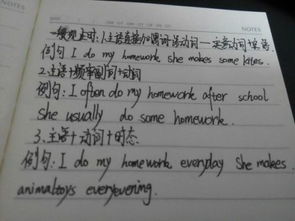 NOTES
一般现在时:1.主语直接加谓语动词
例句 I do my homework she makes some kites.
2.主语+频率副词+动词
例句: I often do my homework after school
she usually do some homework.
3.主语+动词+时态
例句: I do my homework everyday She makes
animaltoys everyevening.